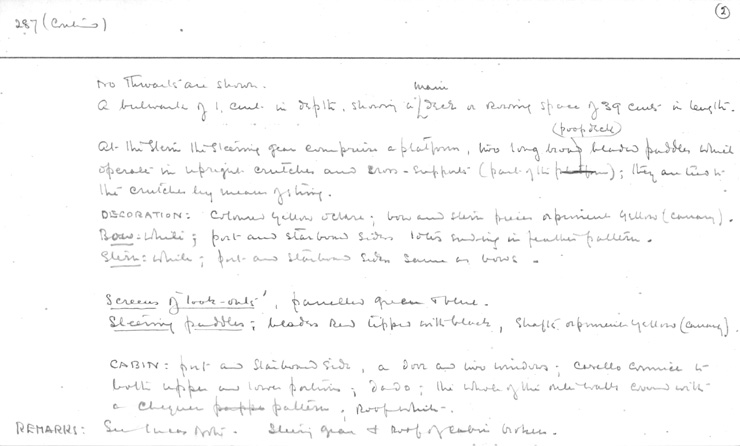 287 (Contin)
②
No Thwarts are shown.
A bulwark of 1, cent. in depth, showing a main Deck or Rowing space of 39 cents in length.
At the Stern the Steering gear comprises a platform, two long broad bladed paddles which
operate in upright crutches and cross-supports (part of the platform) (poop deck); they are tied to
the crutches by means of string.
DECORATION: Coloured yellow ochre; bow and stern pieces orpiment yellow (canary).
Bow: White; port and starboard sides lotus ending in feather pattern.
Stern: White; port and starboard sides same as bows.
Screens of 'look-outs', panelled green & blue.
Steering paddles; blades red tipped with black, shafts orpiment yellow (canary).
CABIN: port and starboard side, a door and two windows; cavetto cornice to
both upper and lower portions; dado; the whole of the outer walls covered with
a chequer pattern, Roof white.
REMARKS: See Lucas Note. Steering gear & Roof of cabin broken.